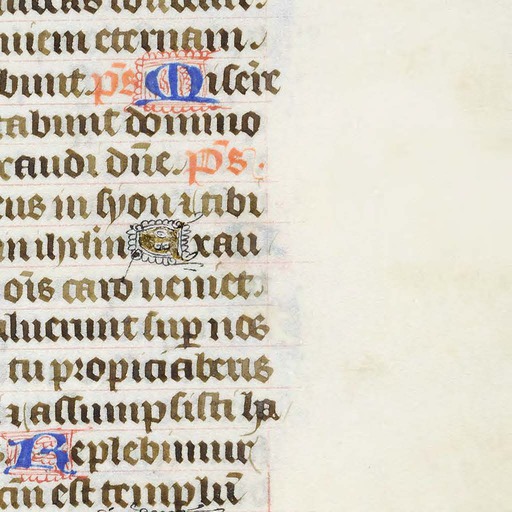 uiem eternam.
bunt. ps̄ Miser̄e
tabunt domino
xaudi dn̄e. ps̄.
eus in syon ⁊ tibi
in ihrl̄m Exau
oīs caro ueniet.
aluerunt sup̱ nos
tu propiciaberis
⁊ assumpsisti ha
Replebimur
cm̄ est templū